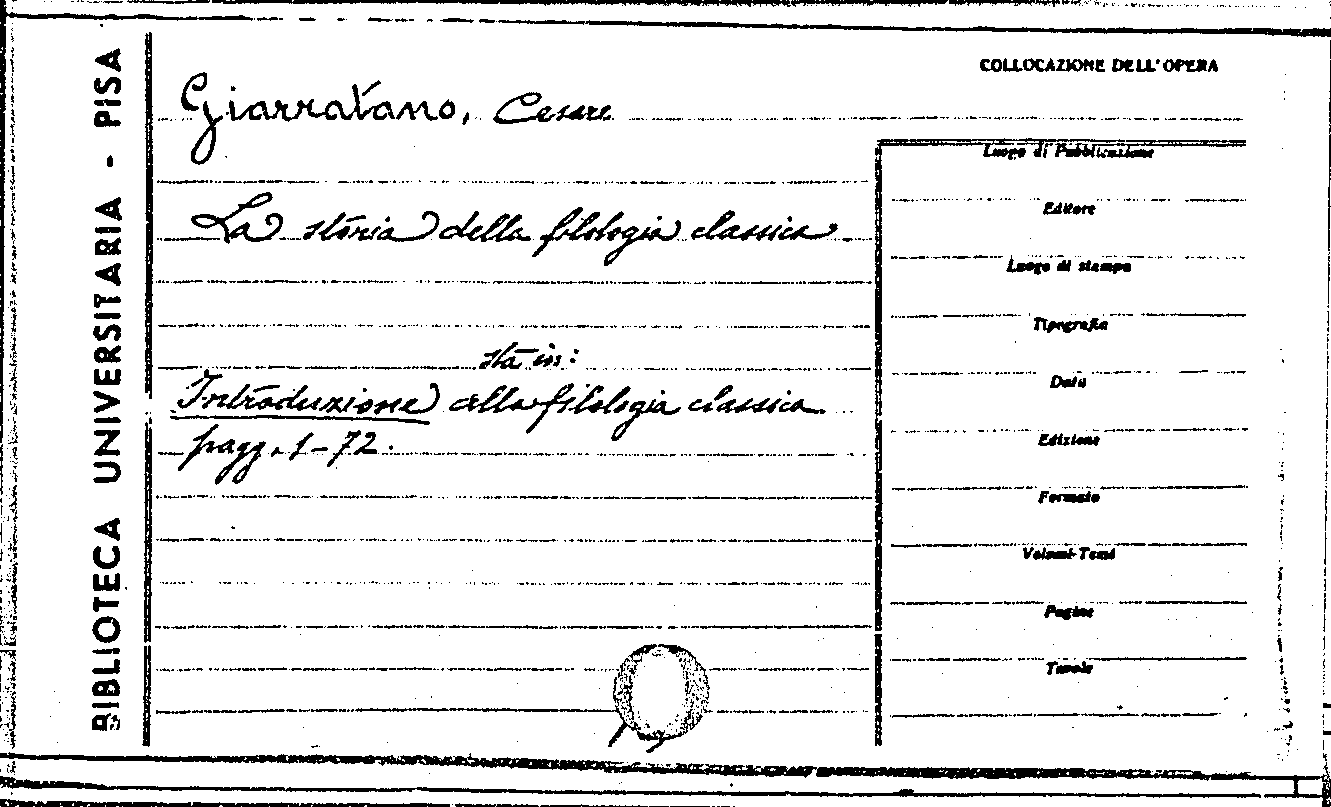 BIBLIOTECA UNIVERSITARIA - PISA
COLLOCAZIONE DELL'OPERA
Giarratano, Cesare
La storia della filologia classica.
sta in:
Introduzione alla filologia classica
pagg. 1-72.
Luogo di Pubblicazione
Editore
Luogo di stampa
Tipografia
Data
Edizione
Formato
Volumi-Tomi
Pagine
Tavole